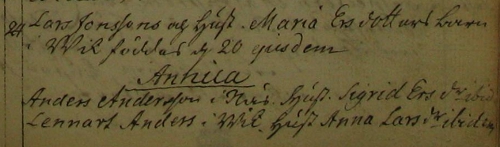 24 Lars Jonssons og Hust. Maria Ersdotters barn
i Wik föddes d 20 ejusdem
Annica
Anders Andersson i Näs. Hust. Sigrid Ersdr ibid
Lennart Anders. i Wik. Hust Anna Larsdr ibidem